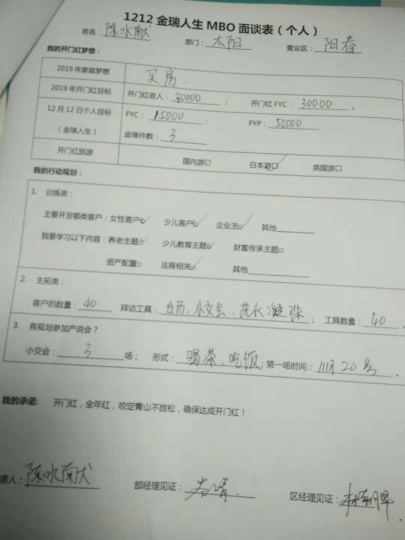 1212 金瑞人生 MBO 面谈表（个人）
姓名：陈水献 部门：太阳 营业区：阳春
我的开门红梦想：
2019 年家庭梦想 买房
2019 年开门红目标 开门红收入：30000 开门红 FYC：30000
12 月 12 日个人目标（金瑞人生） FYC：15000 FYP：50000
金瑞件数：3
开门红旅游 国内游□ 日本游☑ 英国游□
我的行动规划：
1. 训练类：
主要开发哪类客户：女性客户☑ 少儿客户☑ 企业主☑ 其他
我要学习以下内容：养老主题☑ 少儿教育主题☑ 财富传承主题□
资产配置□ 法商相关☑ 其他
2. 主拓类：
客户的数量：40 拜访工具：台历、小交会、洗衣凝珠；工具数量：40
3. 有规划参加产说会？
小交会：3 场； 形式：喝茶、吃饭 第一场时间：11月20号
我的承诺： 开门红，全年红，咬定青山不放松，确保达成开门红！
诺人： 部经理见证： 区经理见证：